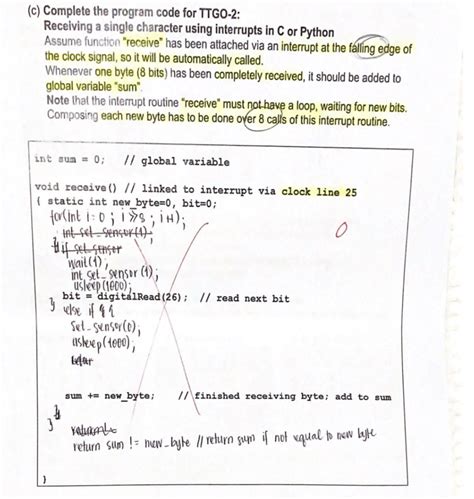 (c) Complete the program code for TTGO-2:
Receiving a single character using interrupts in C or Python
Assume function "receive" has been attached via an interrupt at the falling edge of
the clock signal, so it will be automatically called.
Whenever one byte (8 bits) has been completely received, it should be added to
global variable "sum".
Note that the interrupt routine "receive" must not have a loop, waiting for new bits.
Composing each new byte has to be done over 8 calls of this interrupt routine.
int sum = 0; // global variable
void receive() // linked to interrupt via clock line 25
{ static int new_byte=0, bit=0;
for(int i=0; i>8; i++);
int set_sensor(1);
if set_sensor
wait(1);
int set_sensor(1);
usleep(1000);
bit = digitalRead(26); // read next bit
} else if {{
set_sensor(0);
usleep(1000);
sum += new_byte; // finished receiving byte; add to sum
}
return sum != new_byte // return sum if not equal to new byte
}
0